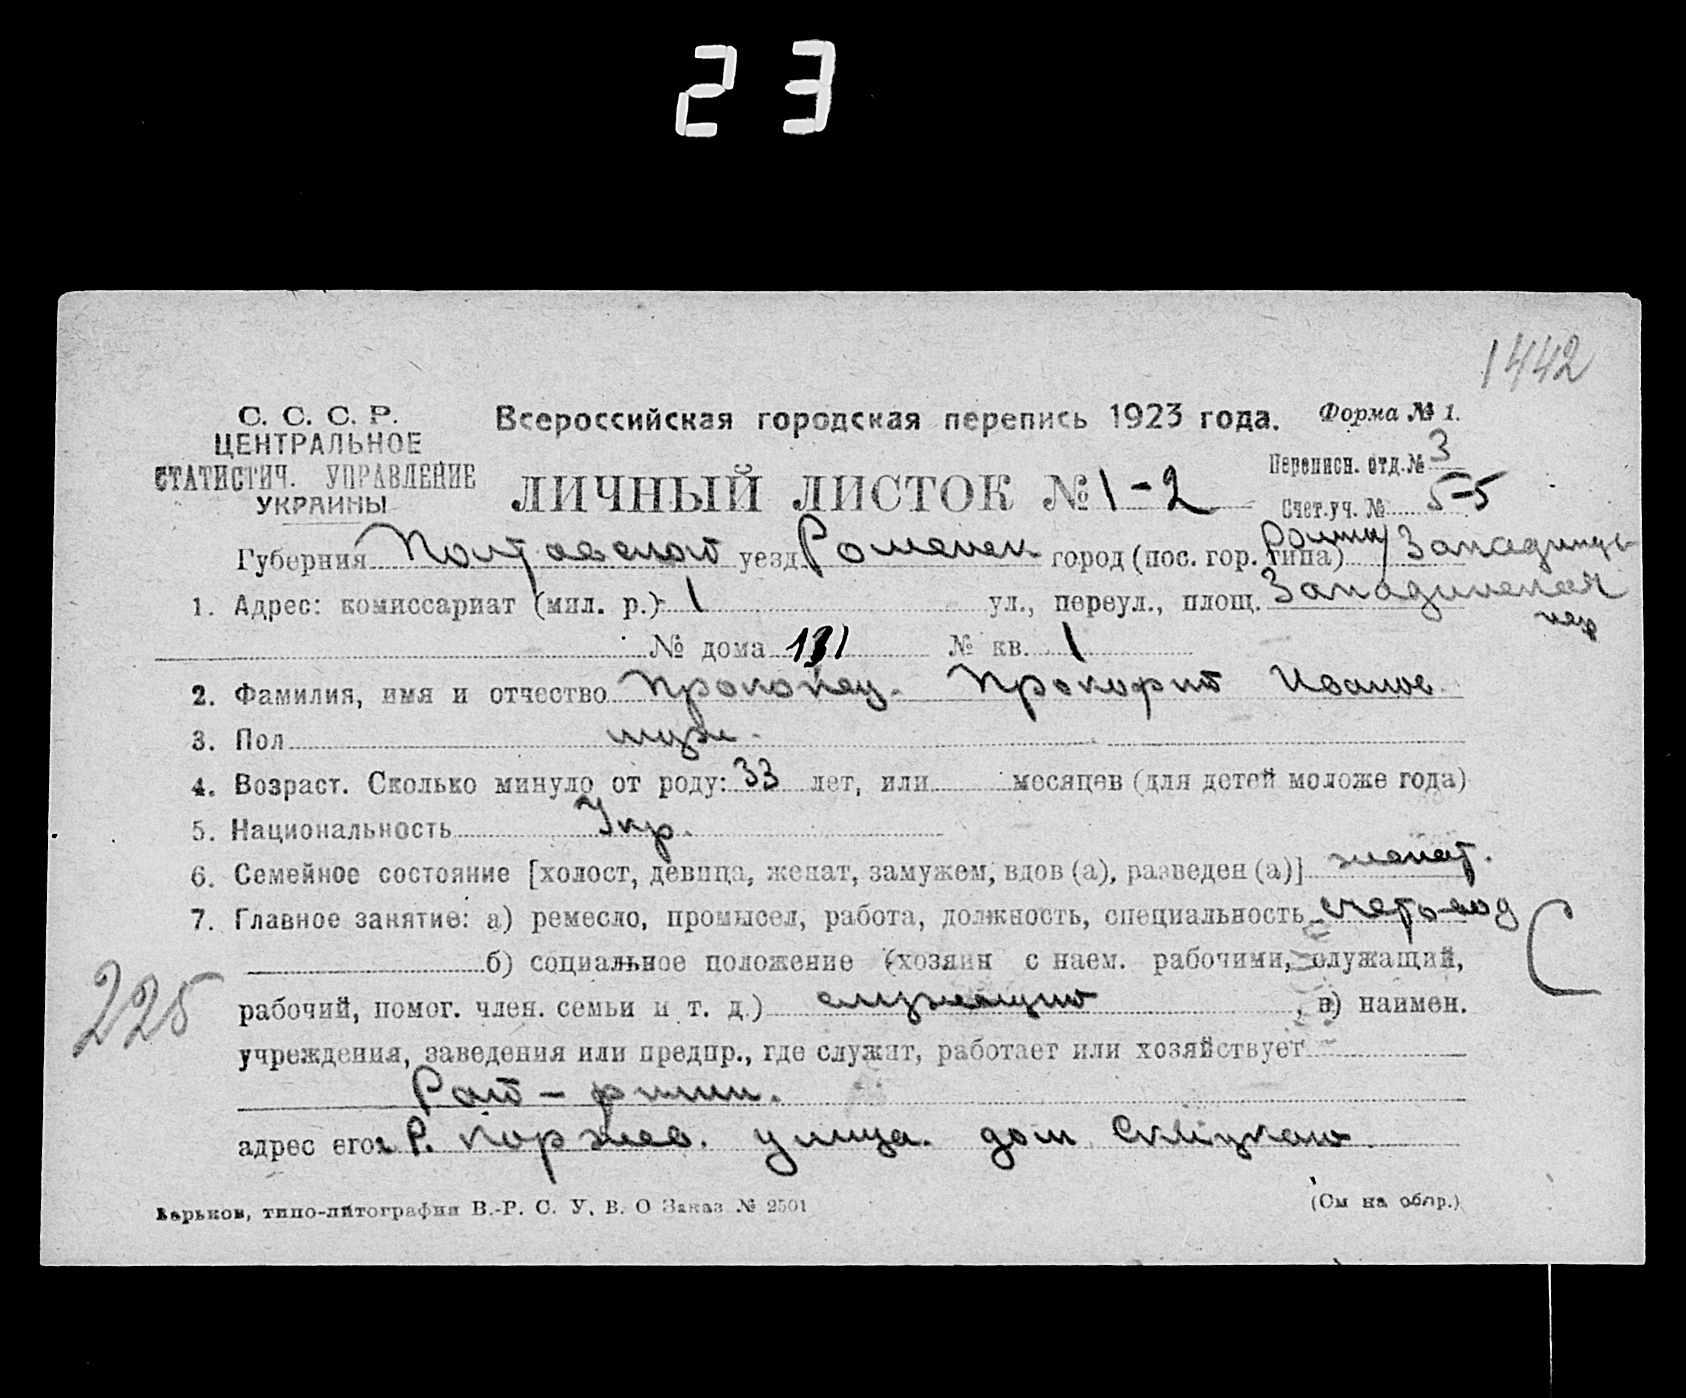 23
1442
С. С. С. Р.
ЦЕНТРАЛЬНОЕ
СТАТИСТИЧ. УПРАВЛЕНИЕ
УКРАИНЫ
Всероссийская городская перепись 1923 года.
Форма № 1.
ЛИЧНЫЙ ЛИСТОК № 1-2
Переписн. отд. № 3
Счет. уч. № 5-5
Губерния Полтавской уезд Роменск город (пос. гор. типа) Ромны/Западинцы
1. Адрес: комиссариат (мил. р.) 1 ул., переул., площ. Западинская
пер
№ дома 131 № кв. 1
2. Фамилия, имя и отчество Прокопец. Прокофий Иванов.
3. Пол муж.
4. Возраст. Сколько минуло от роду: 33 лет, или месяцев (для детей моложе года)
5. Национальность Укр.
6. Семейное состояние [холост, девица, женат, замужем, вдов (а), разведен (а)] женат.
7. Главное занятие: а) ремесло, промысел, работа, должность, специальность счетовод
С
б) социальное положение (хозяин с наем. рабочими, служащий,
225
рабочий, помог. член. семьи и т. д.) служащий, в) наимен.
учреждения, заведения или предпр., где служит, работает или хозяйствует
Рай-
адрес его: Р. Коржев. улица. дом
Харьков, типо-литография В.-Р. С. У. В. О Заказ № 2501
(См на обор.)